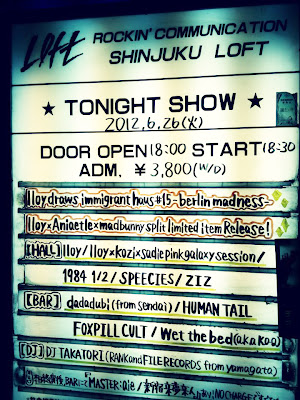 LOFT ROCKIN' COMMUNICATION
SHINJUKU LOFT
★ TONIGHT SHOW ★
2012.6.26(火)
DOOR OPEN 18:00 START 18:30
ADM. ¥3,800 (W/D)
lloy draws immigrant haus #15~berlin madness~
lloy×Aniaetle×madbunny split limited item Release!
[HALL] lloy/lloy×kozi×sadie pink galaxy session/
1984 1/2 / SPEECIES/ ZIZ
[BAR] dadadubi (from sendai) / HUMAN TAIL
FOXPILL CULT / Wet the bed (a.k.a koa)
[DJ] DJ TAKATORI (RANK and FILE RECORDS from yamagata)
BAR MASTER: NO CHARGE